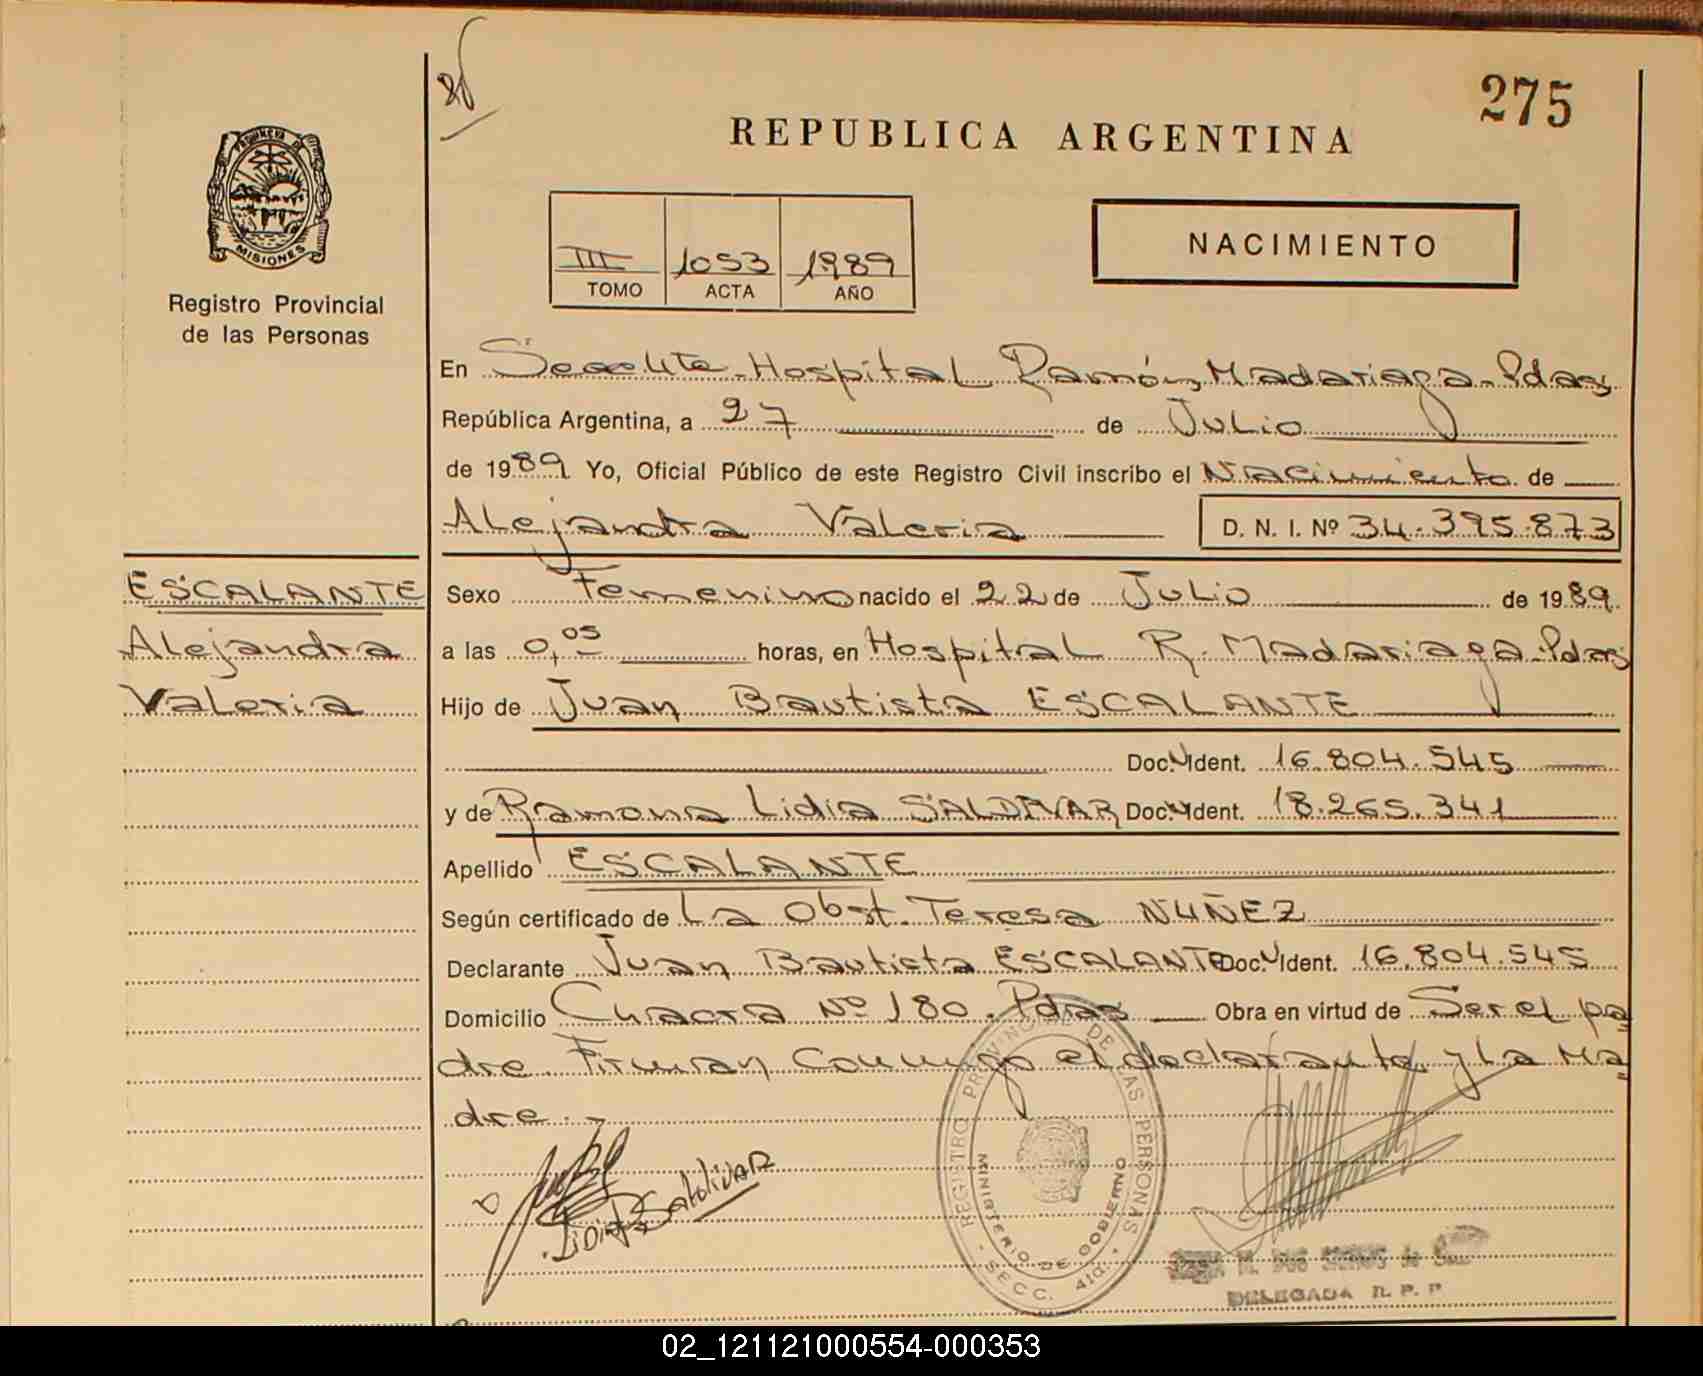 275
REPUBLICA ARGENTINA
PROVINCIA DE
MISIONES
Registro Provincial
de las Personas
III 1053 1989
TOMO ACTA AÑO
NACIMIENTO
En Secc 4ta - Hospital Ramón Madariaga - Pdas
República Argentina, a 27 de Julio
de 1989 Yo, Oficial Público de este Registro Civil inscribo el Nacimiento de
Alejandra Valeria D. N. I. Nº 34.395.873
ESCALANTE
Alejandra
Valeria
Sexo Femenino nacido el 22 de Julio de 1989
a las 0,05 horas, en Hospital R. Madariaga - Pdas
Hijo de Juan Bautista ESCALANTE
Doc. Ident. 16.804.545
y de Ramona Lidia SALDIVAR Doc. Ident. 18.265.341
Apellido ESCALANTE
Según certificado de La Obst. Teresa NUÑEZ
Declarante Juan Bautista ESCALANTE Doc. Ident. 16.804.545
Domicilio Chacra Nº 180 - Pdas Obra en virtud de Ser el pa
dre. Firman Conmigo el declarante y La Ma
dre.-
REGISTRO PROVINCIAL DE LAS PERSONAS
MINISTERIO DE GOBIERNO
SECC. 4ta.
DELEGADA R. P. P.
02_121121000554-000353